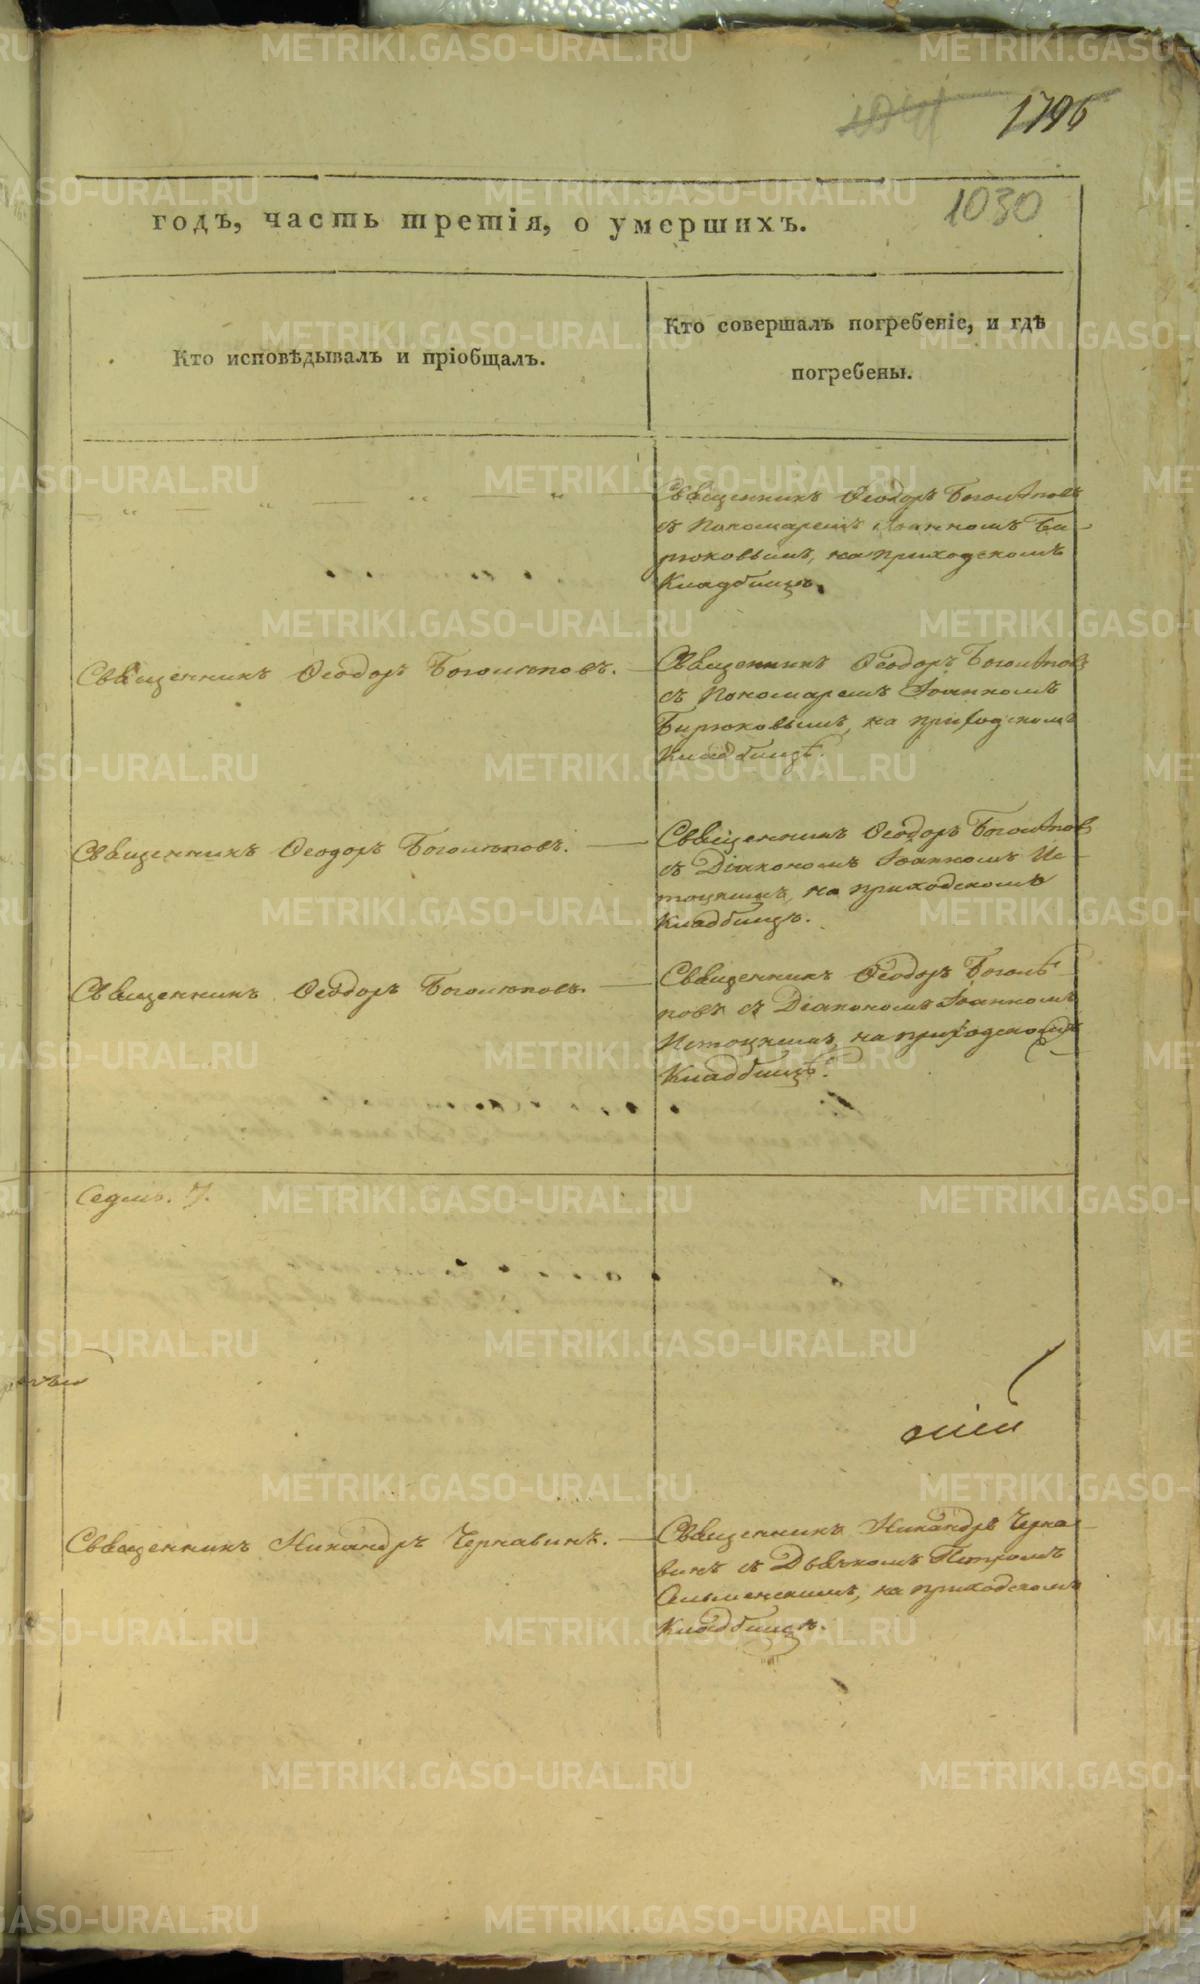 1796
1030
годъ, часть третія, о умершихъ.
Кто исповѣдывалъ и пріобщалъ.
Кто совершалъ погребеніе, и гдѣ
погребены.
Священникъ Ѳеодоръ Боголѣповъ
съ Пономаремъ Іоанномъ Би-
рюковымъ, на приходскомъ
Кладбищѣ.
Священникъ Ѳеодоръ Боголѣповъ.
Священникъ Ѳеодоръ Боголѣповъ
съ Пономаремъ Іоанномъ
Бирюковымъ, на приходскомъ
Кладбищѣ.
Священникъ Ѳеодоръ Боголѣповъ.
Священникъ Ѳеодоръ Боголѣповъ
съ Діакономъ Іоанномъ Ис-
тоцкимъ, на приходскомъ
Кладбищѣ.
Священникъ Ѳеодоръ Боголѣповъ.
Священникъ Ѳеодоръ Боголѣ-
повъ съ Діакономъ Іоанномъ
Истоцкимъ, на приходскомъ
Кладбищѣ.
Седмь. 7.
Священникъ Никандръ Чернавинъ.
Священникъ Никандръ Черна-
винъ съ Дьячкомъ Петромъ
на приходскомъ
Кладбищѣ.
METRIKI.GASO-URAL.RU